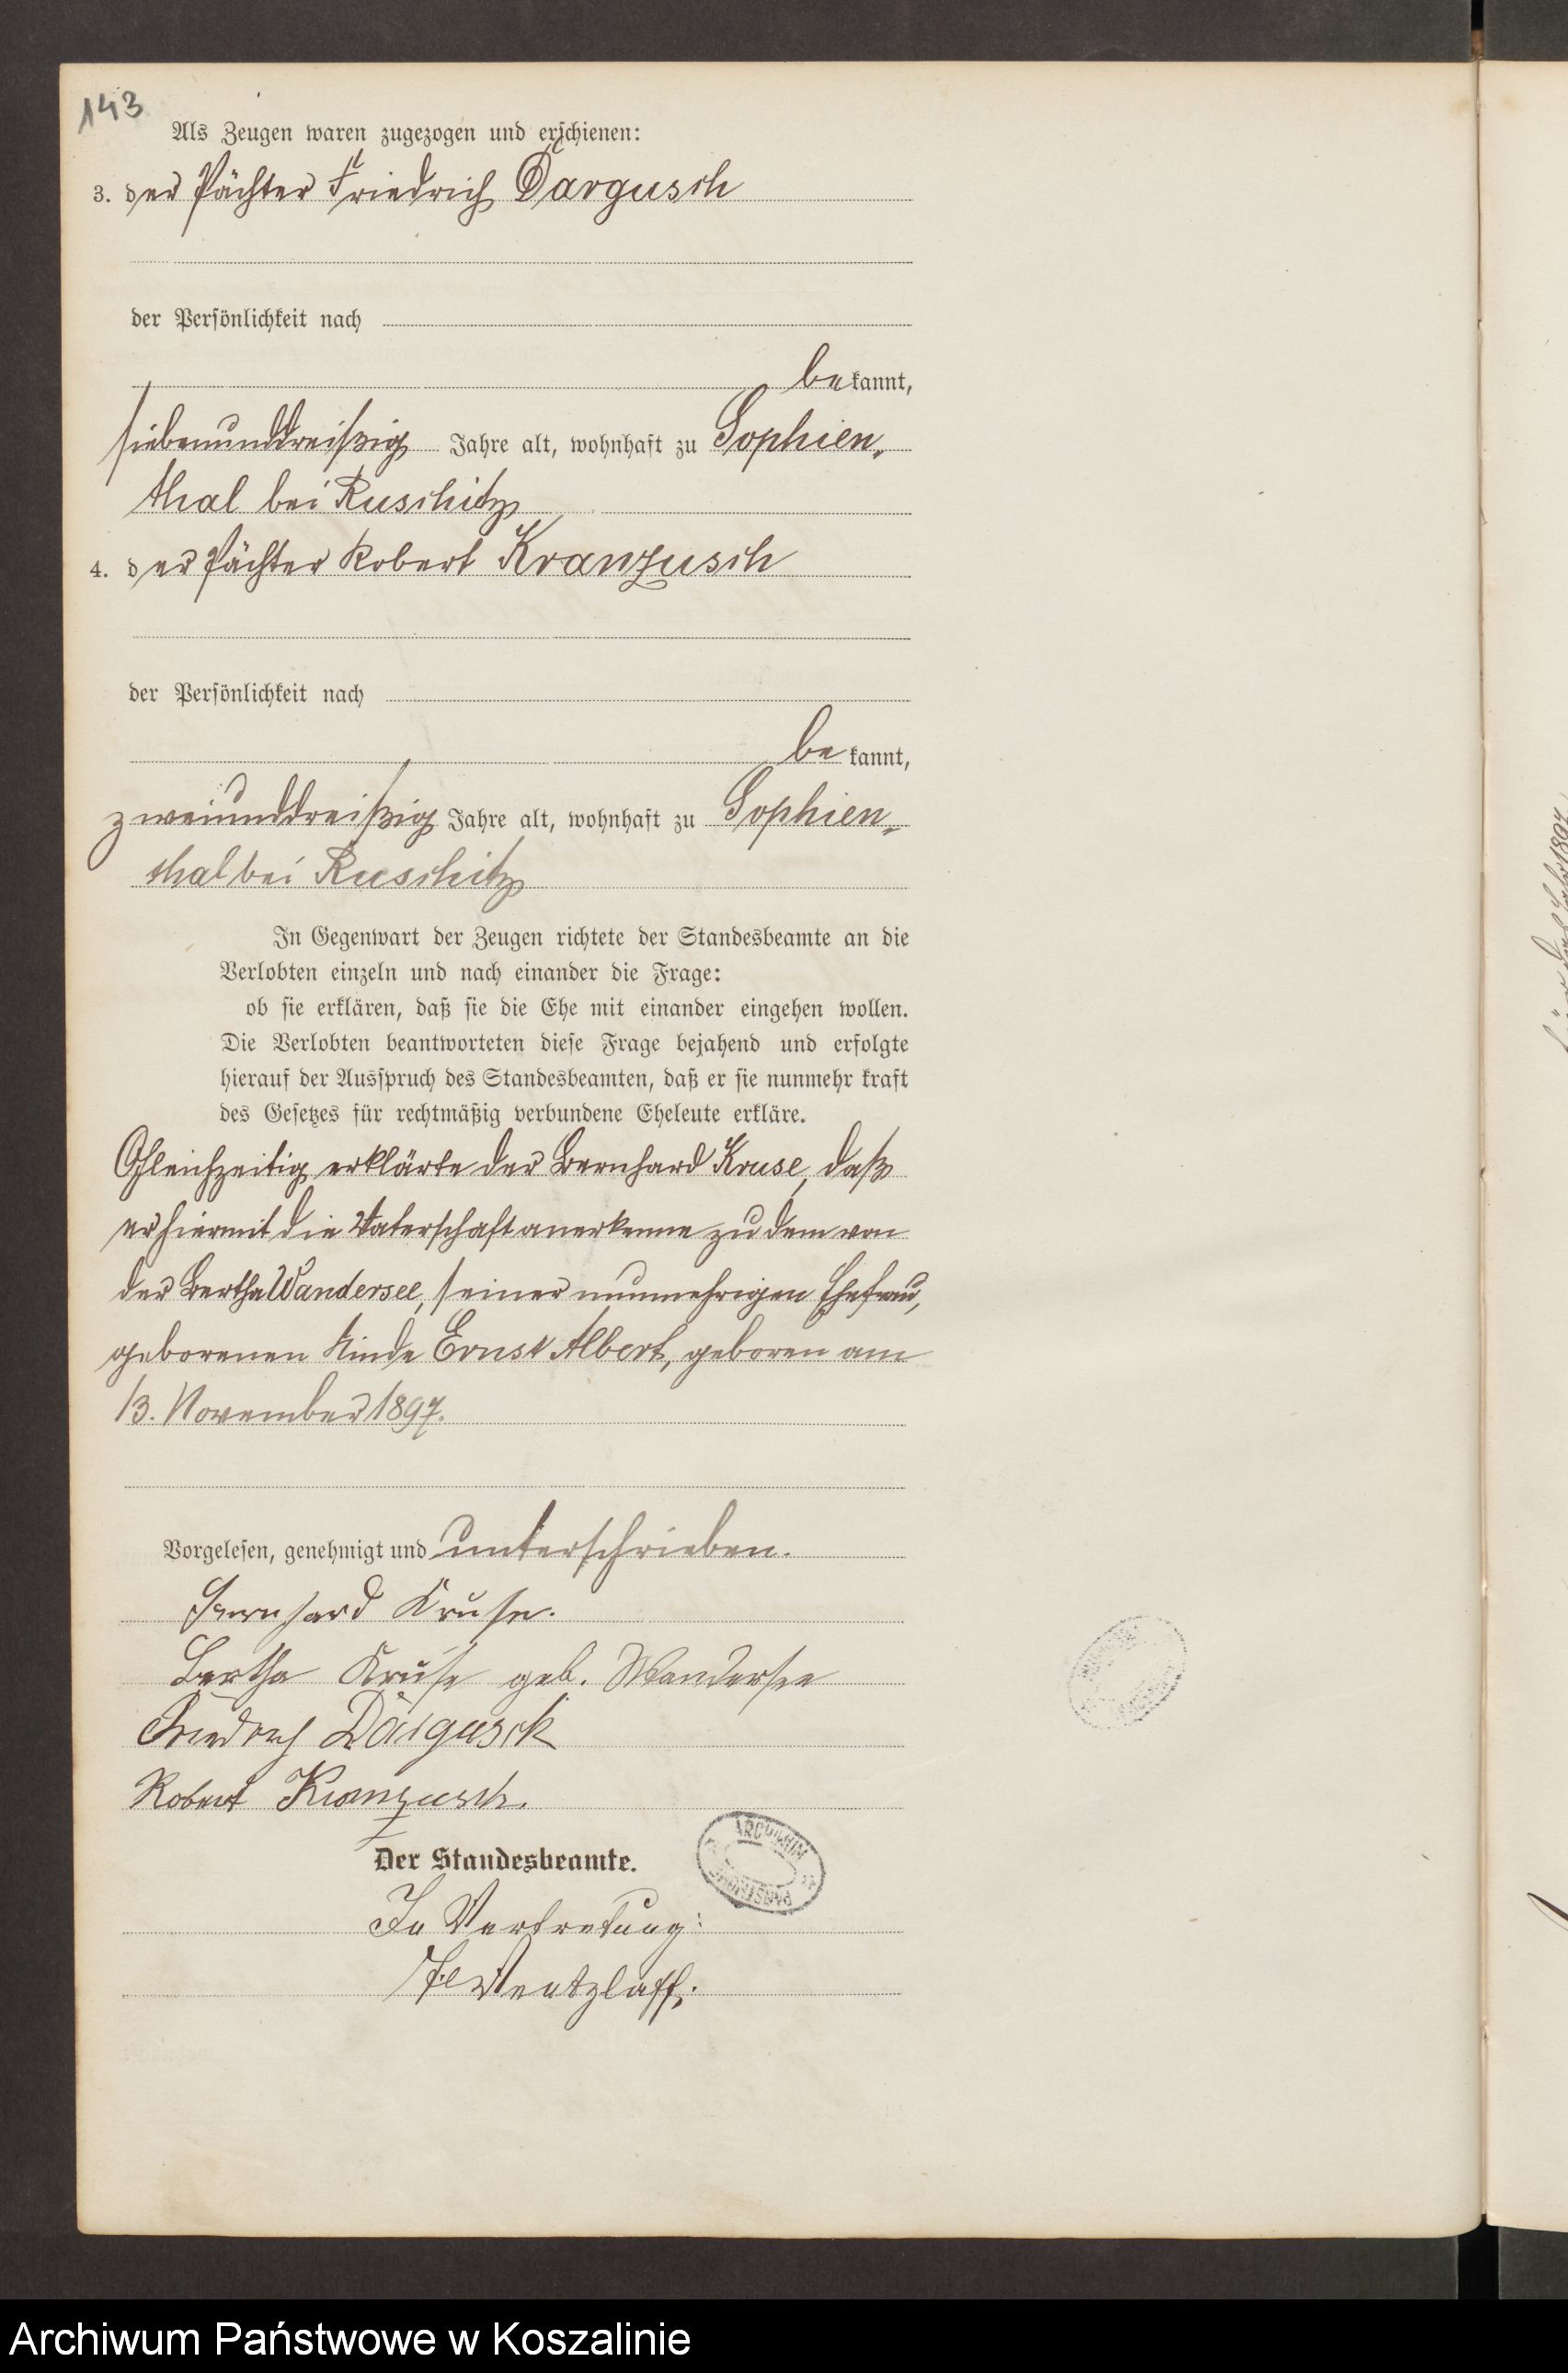 143
Als Zeugen waren zugezogen und erschienen:
3. der Pächter Friedrich Dargusch
der Persönlichkeit nach
bekannt,
siebenunddreißig Jahre alt, wohnhaft zu Sophien-
thal bei Ruschitz
4. der Pächter Robert Kranzusch
der Persönlichkeit nach
bekannt,
zweiunddreißig Jahre alt, wohnhaft zu Sophien-
thal bei Ruschitz
In Gegenwart der Zeugen richtete der Standesbeamte an die
Verlobten einzeln und nach einander die Frage:
ob sie erklären, daß sie die Ehe mit einander eingehen wollen.
Die Verlobten beantworteten diese Frage bejahend und erfolgte
hierauf der Ausspruch des Standesbeamten, daß er sie nunmehr kraft
des Gesetzes für rechtmäßig verbundene Eheleute erkläre.
Gleichzeitig erklärte der Bernhard Kruse, daß
er hiermit die Vaterschaft anerkenne zu dem von
der Bertha Wandersee, seiner nunmehrigen Ehefrau,
geborenen Kinde Ernst Albert, geboren am
13. November 1897.
Vorgelesen, genehmigt und unterschrieben.
Bernhard Kruse.
Bertha Kruse geb. Wandersee
Friedrich Dargusch
Robert Kranzusch.
Der Standesbeamte.
ARCHIWUM
In Vertretung:
Wentzlaff.
Archiwum Państwowe w Koszalinie